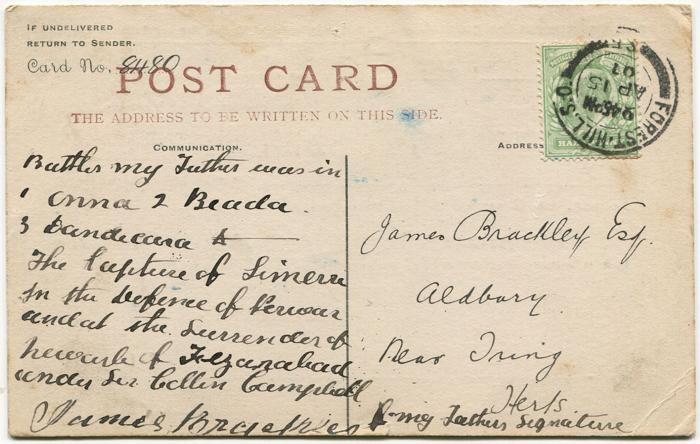 IF UNDELIVERED
RETURN TO SENDER.
Card No. 8480
POST CARD
THE ADDRESS TO BE WRITTEN ON THIS SIDE.
COMMUNICATION.
ADDRESS
FOREST-HILL S.O.
9.45PM
AP 15
07
S.E.
HA
Battles my Father was in
1 Onna 2 Beada
3
The Capture of Simeree
In the Defence of
and at the Surrender of
of Fyzanabad
under Sir Collin Campbell
James Brackley
James Brackley Esq.
Aldbury
Near Tring
Herts
my Fathers Signature